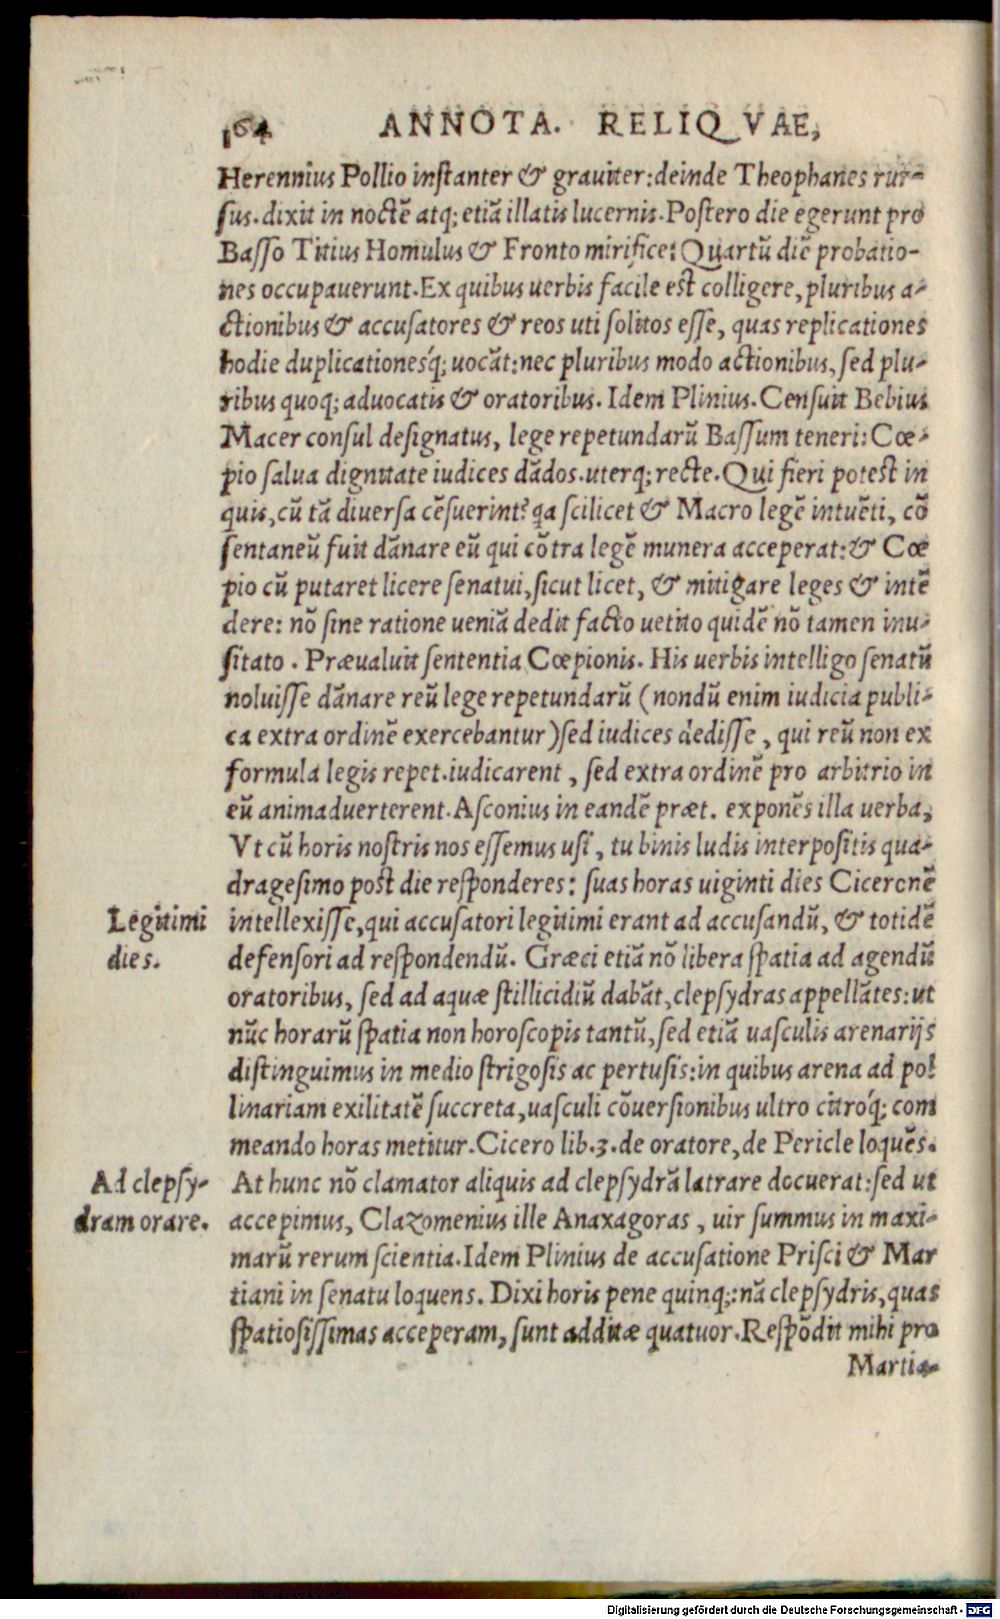 164 ANNOTA. RELIQVAE,
Herennius Pollio instanter & grauiter: deinde Theophanes rur-
sus. dixit in noctē atq; etiā illatis lucernis. Postero die egerunt pro
Basso Titius Homulus & Fronto mirifice: Quartū diē probatio-
nes occupauerunt. Ex quibus uerbis facile est colligere, pluribus a-
ctionibus & accusatores & reos uti solitos esse, quas replicationes
hodie duplicationesq́; uocāt: nec pluribus modo actionibus, sed plu-
ribus quoq; aduocatis & oratoribus. Idem Plinius. Censuit Bebius
Macer consul designatus, lege repetundarū Bassum teneri: Cœ-
pio salua dignitate iudices dādos. uterq; recte. Qui fieri potest in
quis, cū tā diuersa cēsuerint? qa scilicet & Macro legē intuēti, cō
sentaneū fuit dānare eū qui cōtra legē munera acceperat: & Cœ
pio cū putaret licere senatui, sicut licet, & mitigare leges & intē
dere: nō sine ratione ueniā dedit facto uetito quidē nō tamen inu-
sitato. Præualuit sententia Cœpionis. His uerbis intelligo senatū
noluisse dānare reū lege repetundarū (nondū enim iudicia publi-
ca extra ordinē exercebantur) sed iudices dedisse, qui reū non ex
formula legis repet. iudicarent, sed extra ordinē pro arbitrio in
eū animaduerterent. Asconius in eandē præt. exponēs illa uerba,
Vt cū horis nostris nos essemus usi, tu binis ludis interpositis qua-
dragesimo post die responderes: suas horas uiginti dies Ciceronē
Legitimi
dies.
intellexisse, qui accusatori legitimi erant ad accusandū, & totidē
defensori ad respondendū. Græci etiā nō libera spatia ad agendū
oratoribus, sed ad aquæ stillicidiū dabāt, clepsydras appellātes: ut
nūc horarū spatia non horoscopis tantū, sed etiā uasculis arenarijs
distinguimus in medio strigosis ac pertusis: in quibus arena ad pol
linariam exilitatē succreta, uasculi cōuersionibus ultro citroq́; com
meando horas metitur. Cicero lib. 3. de oratore, de Pericle loquēs.
Ad clepsy-
dram orare.
At hunc nō clamator aliquis ad clepsydrā latrare docuerat: sed ut
accepimus, Clazomenius ille Anaxagoras, uir summus in maxi-
marū rerum scientia. Idem Plinius de accusatione Prisci & Mar
tiani in senatu loquens. Dixi horis pene quinq;: nā clepsydris, quas
spatiosissimas acceperam, sunt additæ quatuor. Respōdit mihi pro
Martia-
Digitalisierung gefördert durch die Deutsche Forschungsgemeinschaft - DFG